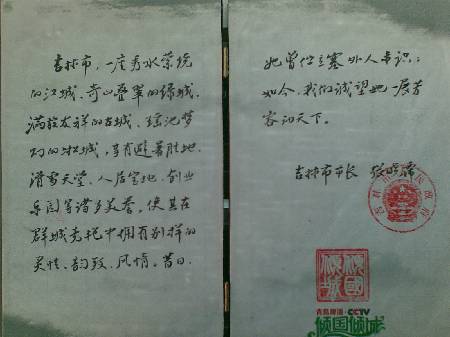 吉林市,一座秀水萦绕
的江城、奇山叠翠的绿城、
满族发祥的古城、瑶池梦
幻的凇城,享有避暑胜地、
滑雪天堂、人居宝地、创业
乐园等诸多美誉。使其在
群城竞艳中拥有别样的
灵性、韵致、风情。昔日,
她曾伫立塞外人未识;
如今,我们诚望她一展芳
容动天下。
吉林市市长 张晓霈
吉林市人民政府
倾国倾城
青岛啤酒·CCTV
倾国倾城